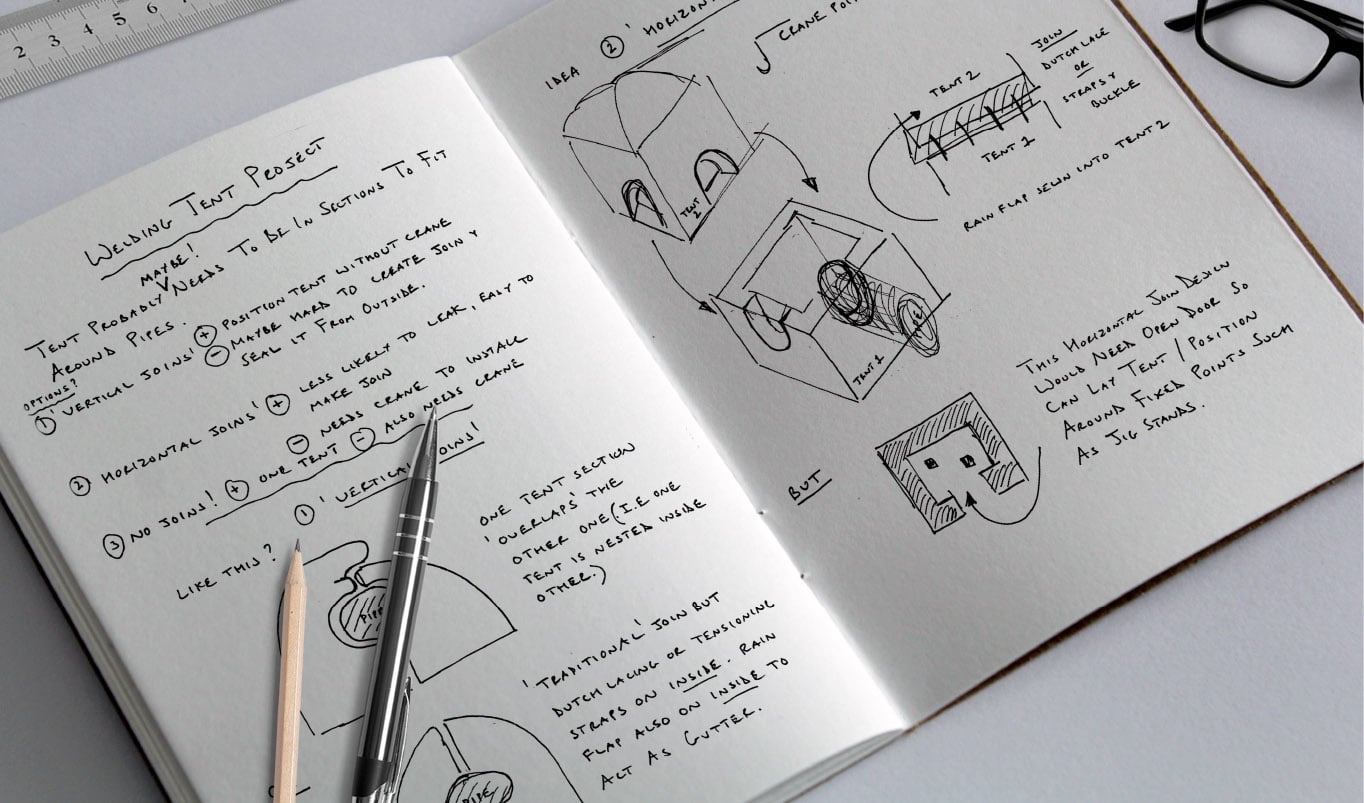 2 3 4 5 6 7
WELDING TENT PROJECT
MAYBE!
TENT PROBADLY NEEDS TO BE IN SECTIONS TO FIT
AROUND PIPES.
OPTIONS?
① 'VERTICAL JOINS' ⊕ POSITION TENT WITHOUT CRANE
⊖ MAYBE HARD TO CREATE JOIN Y
SEAL IT FROM OUTSIDE.
② HORIZONTAL JOINS' ⊕ LESS LIKELY TO LEAK, EASY TO
MAKE JOIN
⊖ NEEDS CRANE TO INSTALL
③ NO JOINS! ⊕ ONE TENT ⊖ ALSO NEEDS CRANE
① 'VERTICAL JOINS!
LIKE THIS?
PIPE
ONE TENT SECTION
'OVERLAPS' THE
OTHER ONE (I.E ONE
TENT IS NESTED INSIDE
OTHER.)
'TRADITIONAL' JOIN BUT
DUTCH LACING OR TENSIONING
STRAPS ON INSIDE. RAIN
FLAP ALSO ON INSIDE TO
ACT AS GUTTER.
PIPE
IDEA ② 'HORIZONT
CRANE POI
TENT 2
TENT 1
PIPE
TENT 2
TENT 1
JOIN
DUTCH LACE
OR
STRAPS Y
BUCKLE
RAIN FLAP SEWN INTO TENT 2
THIS HORIZONTAL JOIN DESIGN
WOULD NEED OPEN DOOR SO
CAN LAY TENT / POSITION
AROUND FIXED POINTS SUCH
AS JIG STANDS.
BUT